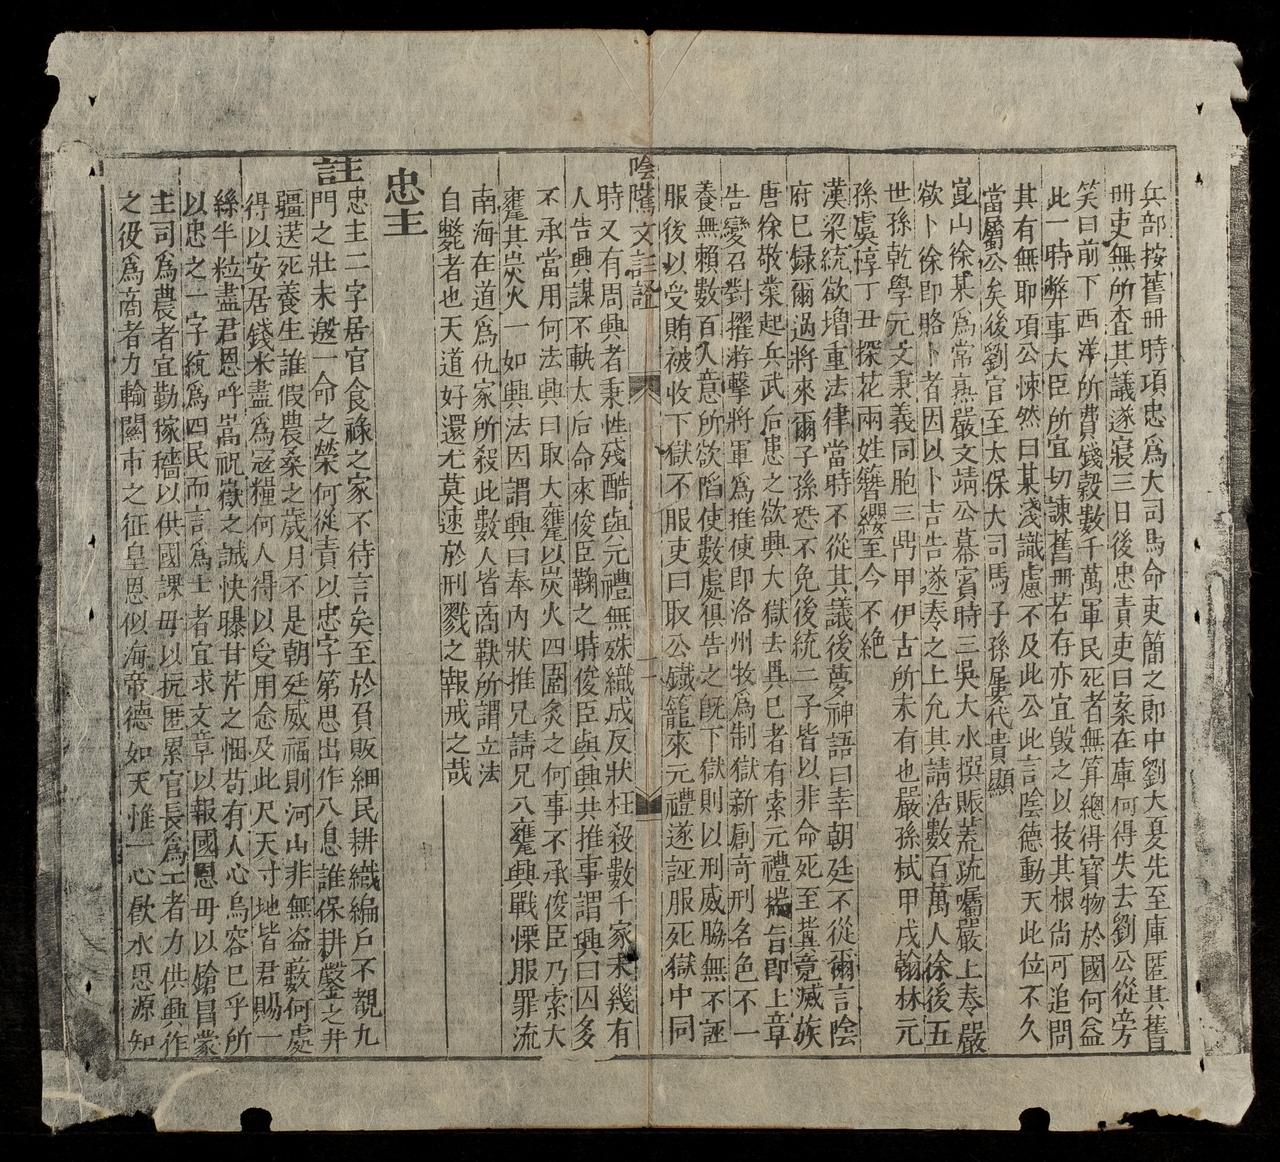 兵部按舊冊時項忠為大司馬命吏簡之郎中劉大夏先至庫匿其舊
冊吏無所查其議遂寢三日後忠責吏曰案在庫何得失去劉公從旁
笑曰前下西洋所費錢穀數千萬軍民死者無算總得寶物於國何益
此一時弊事大臣所宜切諫舊冊若存亦宜毀之以拔其根尚可追問
其有無耶項公悚然曰某淺識慮不及此公此言陰德動天此位不久
當屬公矣後劉官至太保大司馬子孫屢代貴顯
崑山徐某為常熟嚴文靖公幕賓時三吳大水撰賑荒疏囑嚴上奏嚴
欲卜徐即賂卜者因以卜吉告遂奏之上允其請活數百萬人徐後五
世孫乾學元文秉義同胞三鼎甲伊古所未有也嚴孫栻甲戌翰林元
孫虞惇丁丑探花兩姓簪纓至今不絕
漢梁統欲增重法律當時不從其議後夢神語曰幸朝廷不從爾言陰
府已録爾過將來爾子孫恐不免後統二子皆以非命死至冀竟滅族
唐徐敬業起兵武后患之欲興大獄去異已者有索元禮揣旨即上章
告變召對擢游擊將軍為推使即洛州牧為制獄新創奇刑名色不一
養無賴數百人意所欲陷使數處俱告之既下獄則以刑威脇無不誣
服後以受賄被收下獄不服吏曰取公鐵籠來元禮遂誣服死獄中同
陰騭文註證
二
時又有周興者秉性殘酷與元禮無殊織成反狀枉殺數千家未幾有
人告興謀不軌太后命來俊臣鞠之時俊臣與興共推事謂興曰囚多
不承當用何法興曰取大甕以炭火四圍炙之何事不承俊臣乃索大
甕其炭火一如興法因謂興曰奉內狀推兄請兄入甕興戰慄服罪流
南海在道為仇家所殺此數人皆商鞅所謂立法
自斃者也天道好還尤莫速於刑戮之報戒之哉
忠主
註
忠主二字居官食祿之家不待言矣至於負販細民耕織編戶不覩九
門之壯未邀一命之榮何從責以忠字第思出作入息誰保耕鑿之井
疆送死養生誰假農桑之歲月不是朝廷威福則河山非無盗藪何處
得以安居錢米盡為寇糧何人得以受用念及此尺天寸地皆君賜一
絲半粒盡君恩呼嵩祝嶽之誠快曝甘芹之悃苟有人心烏容已乎所
以忠之一字統為四民而言為士者宜求文章以報國恩毋以鎗昌蒙
主司為農者宜勤稼穡以供國課毋以抗匿累官長為工者力供興作
之役為商者力輸關市之征皇恩似海帝德如天惟一心飲水思源知